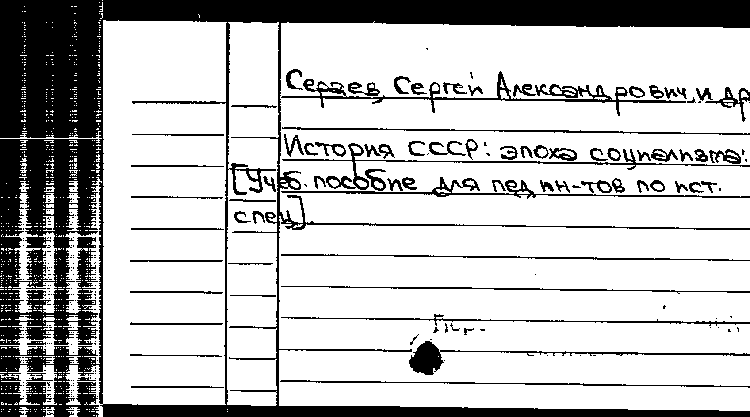 Сергей Александрович и др
История СССР: эпоха социализма:
[Учеб. пособие для пед ин-тов по ист.
спец].